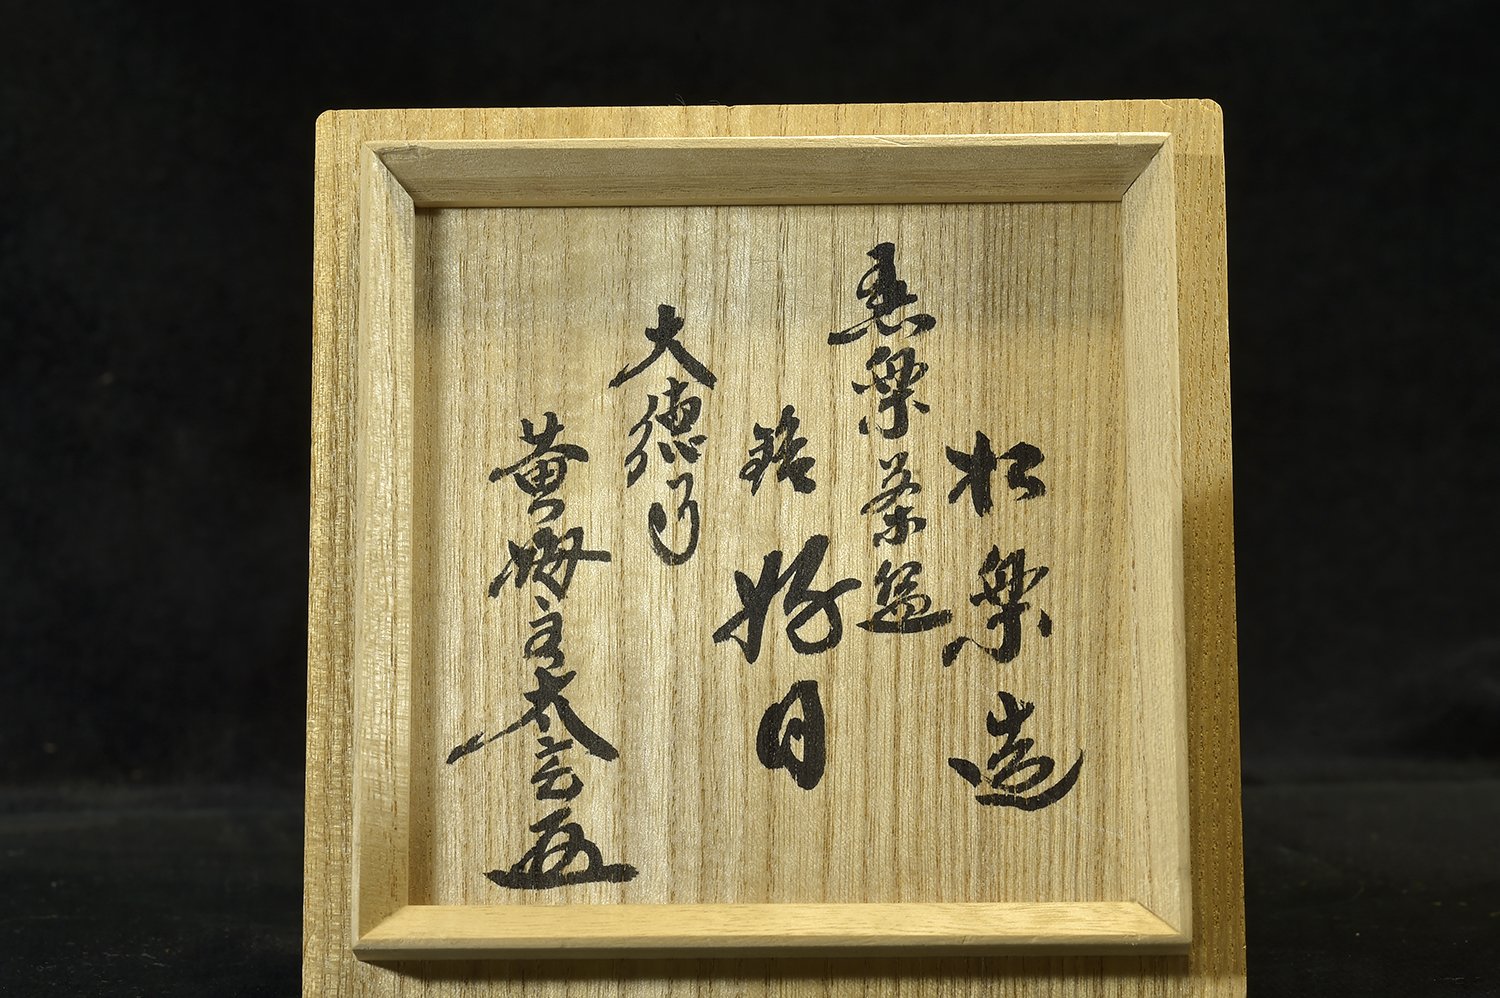 松楽造
黒楽茶盌
銘 好日
大徳寺
黄梅主太玄